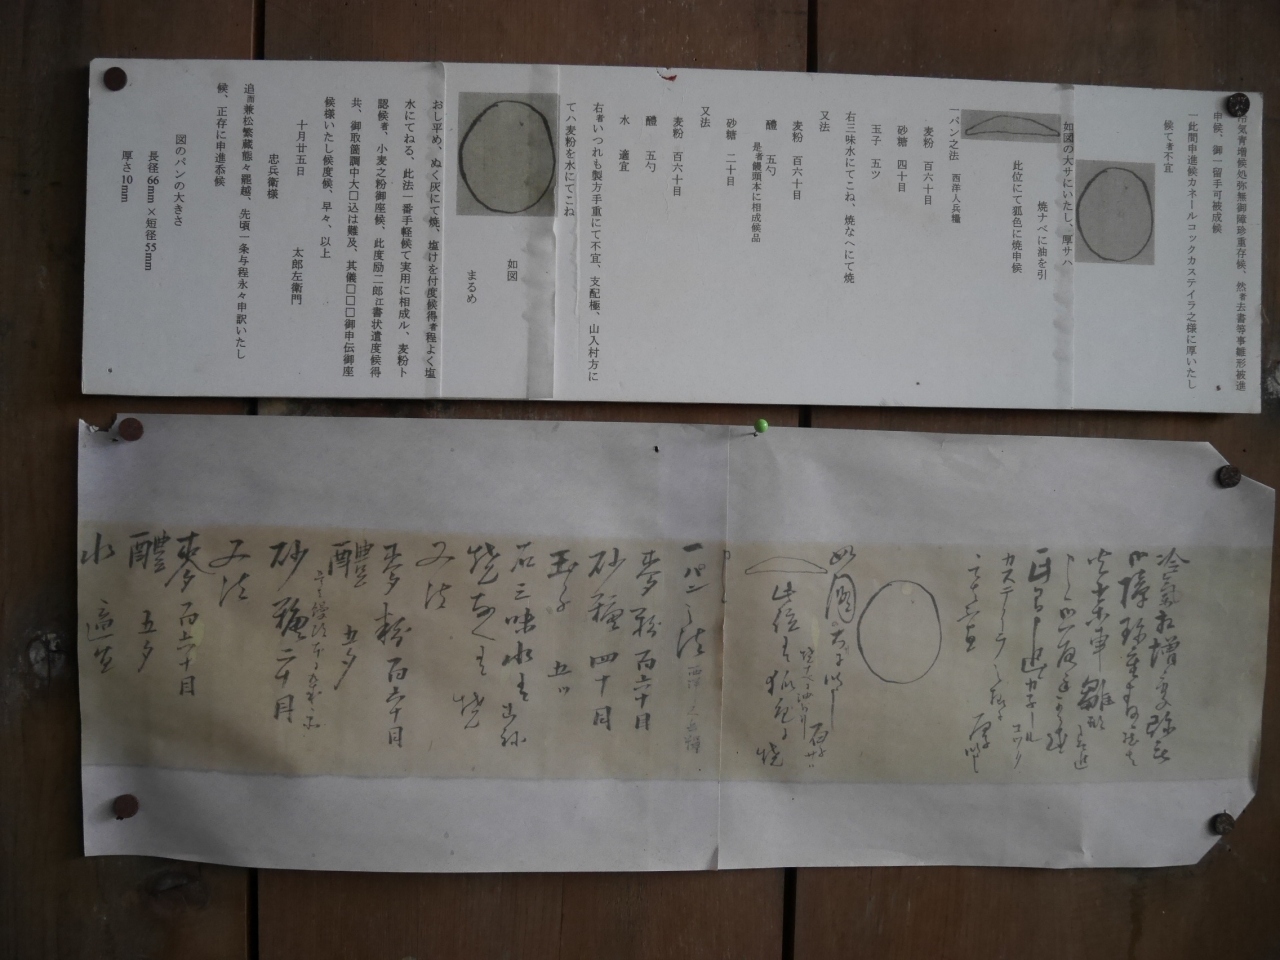 冷気育増候処弥無御障珍重存候、然者去書等事雛形被進
申候、御一留手可被成候
一此間申進候カネールコックカステイラ之様に厚いたし
候て者不宜
如図の大サにいたし、厚サハ
焼ナベに油を引
此位にて狐色に焼申候
一パン之法 西洋人兵糧
麦粉 百六十目
砂糖 四十目
玉子 五ツ
右三味水にてこね、焼なへにて焼
又法
麦粉 百六十目
醴 五勺
是者饅頭本に相成候品
砂糖 二十目
又法
麦粉 百六十目
醴 五勺
水 適宜
右者いつれも製方手重にて不宜、支配極、山入村方に
てハ麦粉を水にてこね
如図
まるめ
おし平め、ぬく灰にて焼、塩けを付度候得者程よく塩
水にてねる、此法一番手軽候て実用に相成ル、麦粉ト
認候者、小麦之粉御座候、此度助二郎江書状遣度候得
共、御取箇調中大口込は難及、其儀□□□御申伝御座
候様いたし候度候、早々、以上
十月廿五日
太郎左衛門
忠兵衛様
追而兼松繁蔵態々罷越、先頃一条与程永々申訳いたし
候、正存に申進忝候
図のパンの大きさ
長径66mm×短径55mm
厚さ10mm
冷気相増候処弥無
御障珍重存候然者
去書等事雛形被進
カステーラ之様に厚いたし
如図の大サにいたし 厚サハ
焼ナベに油を引
此位にて狐色に焼
一パン之法 西洋人兵糧
麦粉 百六十目
砂糖 四十目
玉子 五ツ
右三味水にてこね
焼なへにて焼
又法
麦粉 百六十目
醴 五勺
砂糖 二十目
又法
麦粉 百六十目
醴 五勺
水 適宜